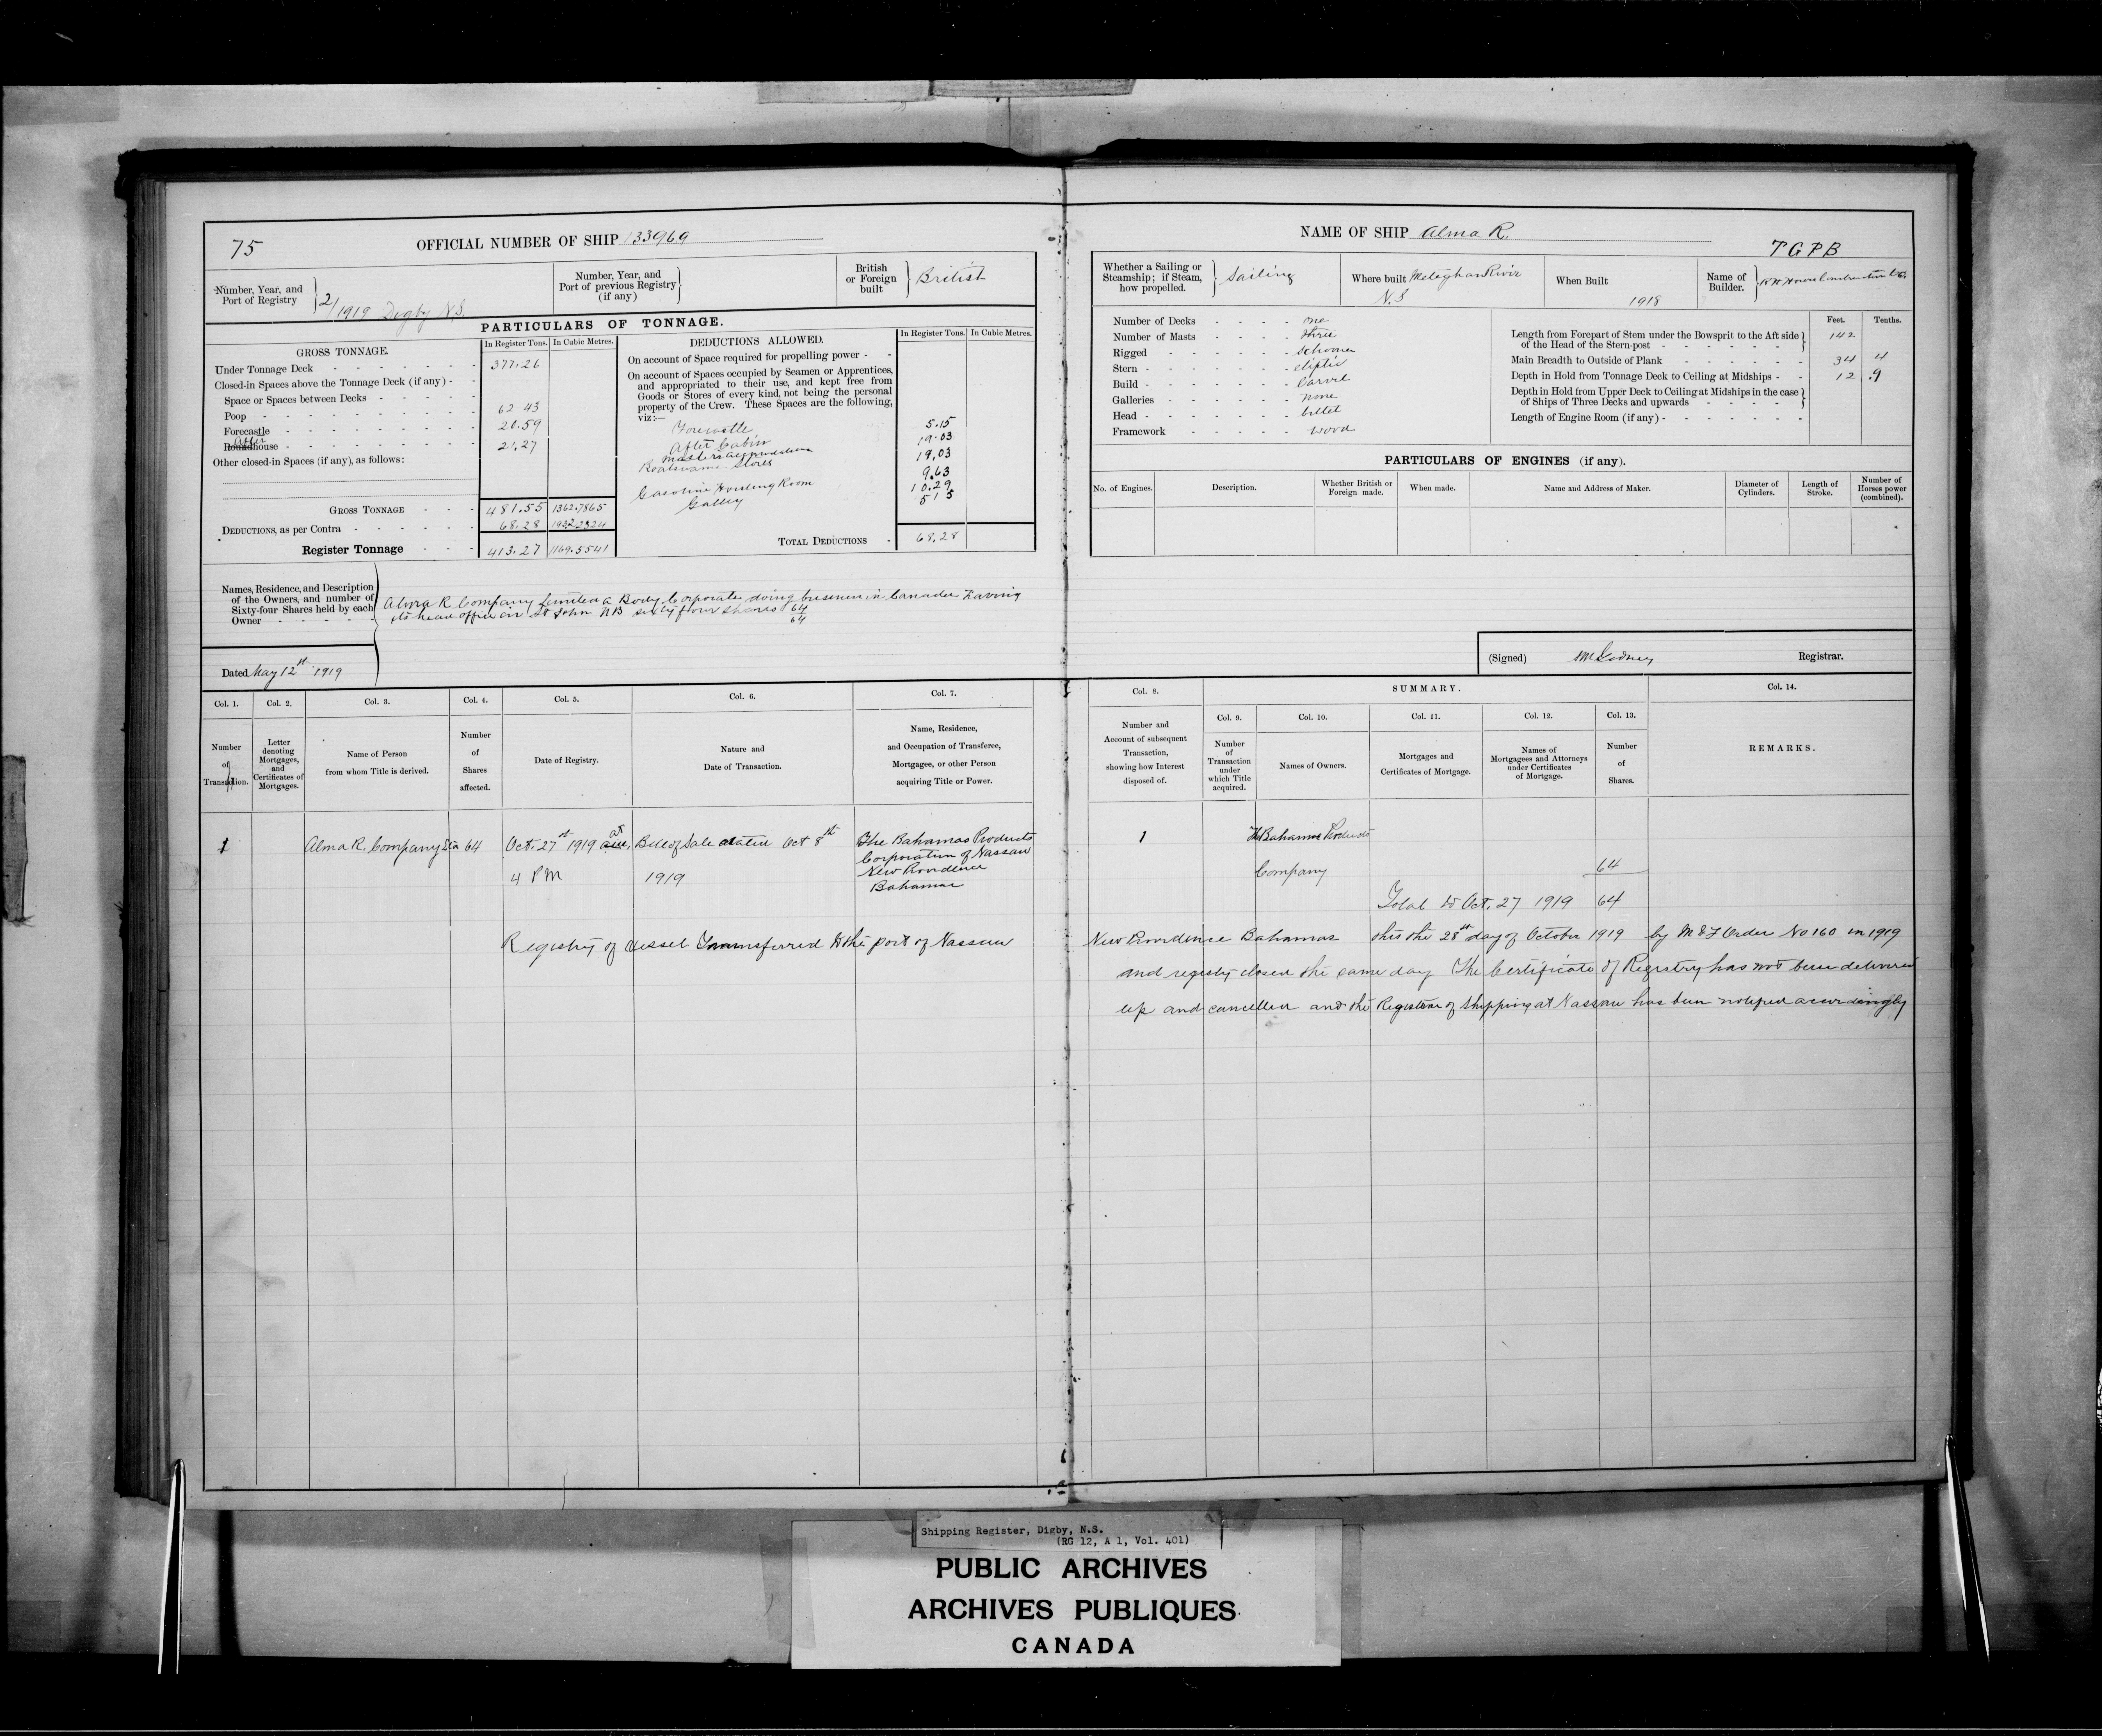 75
OFFICIAL NUMBER OF SHIP 133969
Number, Year, and Port of Registry
2/1919 Digby N.S.
Number, Year, and Port of previous Registry (if any)
British or Foreign built
British
PARTICULARS OF TONNAGE.
GROSS TONNAGE.
In Register Tons.
In Cubic Metres.
Under Tonnage Deck 377.26
Closed-in Spaces above the Tonnage Deck (if any)
Space or Spaces between Decks
Poop 62 43
Forecastle 20.59
After
Roundhouse 21.27
Other closed-in Spaces (if any), as follows:
GROSS TONNAGE 481.55 1362.7865
DEDUCTIONS, as per Contra 68.28 193.2324
Register Tonnage 413.27 1169.5541
DEDUCTIONS ALLOWED.
In Register Tons.
In Cubic Metres.
On account of Space required for propelling power
On account of Spaces occupied by Seamen or Apprentices,
and appropriated to their use, and kept free from
Goods or Stores of every kind, not being the personal
property of the Crew. These Spaces are the following,
viz:—
Forecastle 5.15
After Cabin 19.03
Masters accomodation 19.03
Boatswains Stores 9.63
Gasoline Hoisting Room 10.29
Galley 5 15
TOTAL DEDUCTIONS 68.28
Names, Residence, and Description
of the Owners, and number of
Sixty-four Shares held by each
Owner
Alma R Company Limited a Body Corporate doing business in Canada Having
its head office in St John NB sixty four shares 64
64
Dated May 12st 1919
NAME OF SHIP Alma R.
TGPB
Whether a Sailing or Steamship; if Steam, how propelled.
Sailing
Where built Meteghan River
N.S
When Built
1918
Name of Builder.
Number of Decks one
Number of Masts three
Rigged Schooner
Stern eliptic
Build Carvel
Galleries none
Head billet
Framework wood
Feet. Tenths.
Length from Forepart of Stem under the Bowsprit to the Aft side
of the Head of the Stern-post 142
Main Breadth to Outside of Plank 34 4
Depth in Hold from Tonnage Deck to Ceiling at Midships 12 .9
Depth in Hold from Upper Deck to Ceiling at Midships in the case
of Ships of Three Decks and upwards
Length of Engine Room (if any)
PARTICULARS OF ENGINES (if any).
No. of Engines.
Description.
Whether British or Foreign made.
When made.
Name and Address of Maker.
Diameter of Cylinders.
Length of Stroke.
Number of Horses power (combined).
(Signed)
Registrar.
Col. 1.
Col. 2.
Col. 3.
Col. 4.
Col. 5.
Col. 6.
Col. 7.
Number of Transaction.
Letter denoting Mortgages, and Certificates of Mortgages.
Name of Person from whom Title is derived.
Number of Shares affected.
Date of Registry.
Nature and Date of Transaction.
Name, Residence, and Occupation of Transferee, Mortgagee, or other Person acquiring Title or Power.
Col. 8.
SUMMARY.
Col. 14.
Col. 9.
Col. 10.
Col. 11.
Col. 12.
Col. 13.
Number and Account of subsequent Transaction, showing how Interest disposed of.
Number of Transaction under which Title acquired.
Names of Owners.
Mortgages and Certificates of Mortgage.
Names of Mortgagees and Attorneys under Certificates of Mortgage.
Number of Shares.
REMARKS.
1 Alma R. Company Ltd 64 Oct. 27st 1919 at Bill of Sale dated Oct 8th The Bahamas Products
4 PM 1919 Corporation of Nassau
New Providence
Bahamas
1 The Bahamas Products
Company 64
Total to Oct. 27 1919 64
Registry of vessel Transferred to the port of Nassau New Providence Bahamas this the 28st day of October 1919 by M & F Order No 160 in 1919
and registry closed the same day The Certificate of Registry has not been delivered
up and cancelled and the Registrar of Shipping at Nassau has been notified accordingly
Shipping Register, Digby, N.S.
(RG 12, A 1, Vol. 401)
PUBLIC ARCHIVES
ARCHIVES PUBLIQUES
CANADA